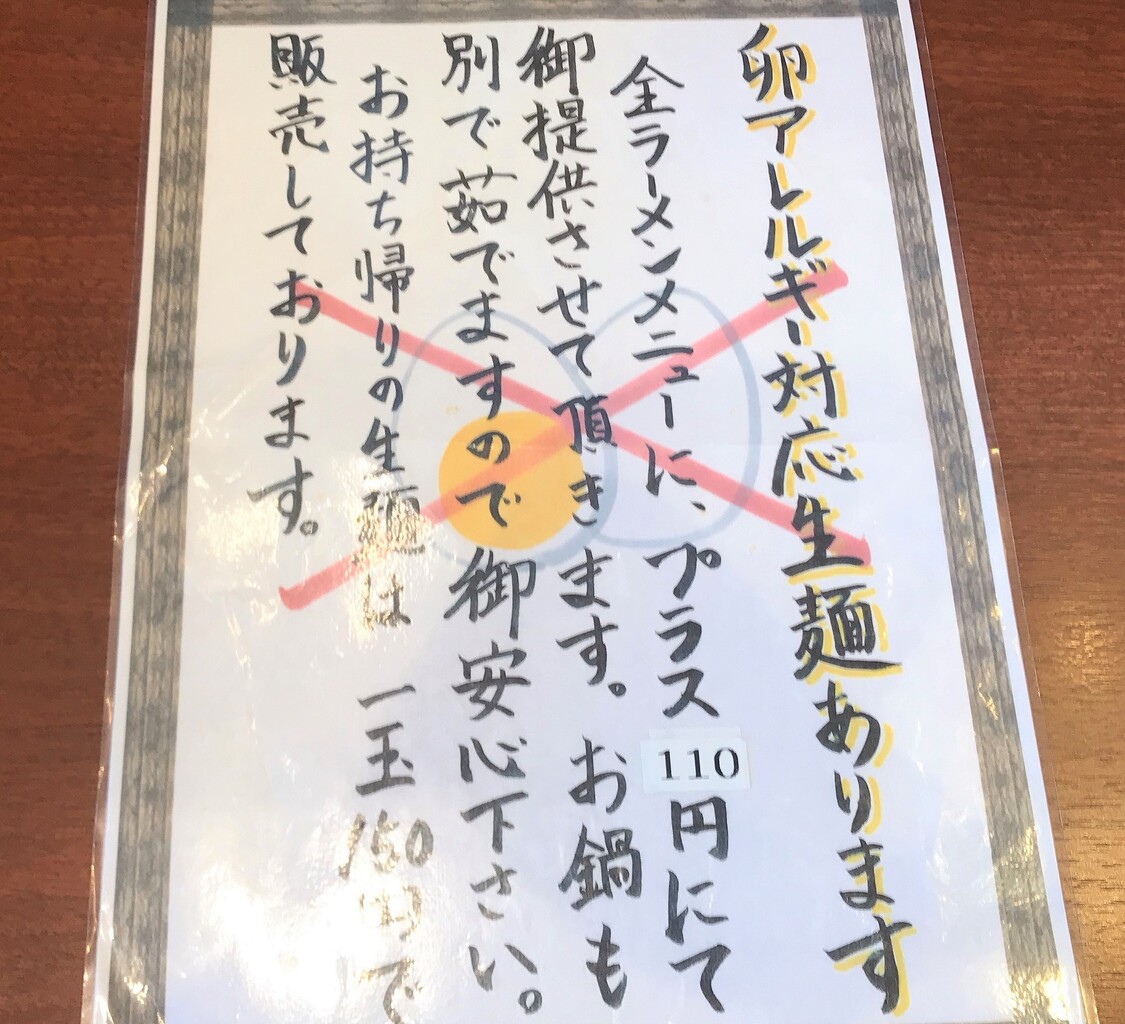 卵アレルギー対応生麺あります
全ラーメンメニューに、プラス110円にて
御提供させて頂きます。お鍋も
別で茹でますので御安心下さい。
お持ち帰りの生麺は 一玉150円で
販売しております。